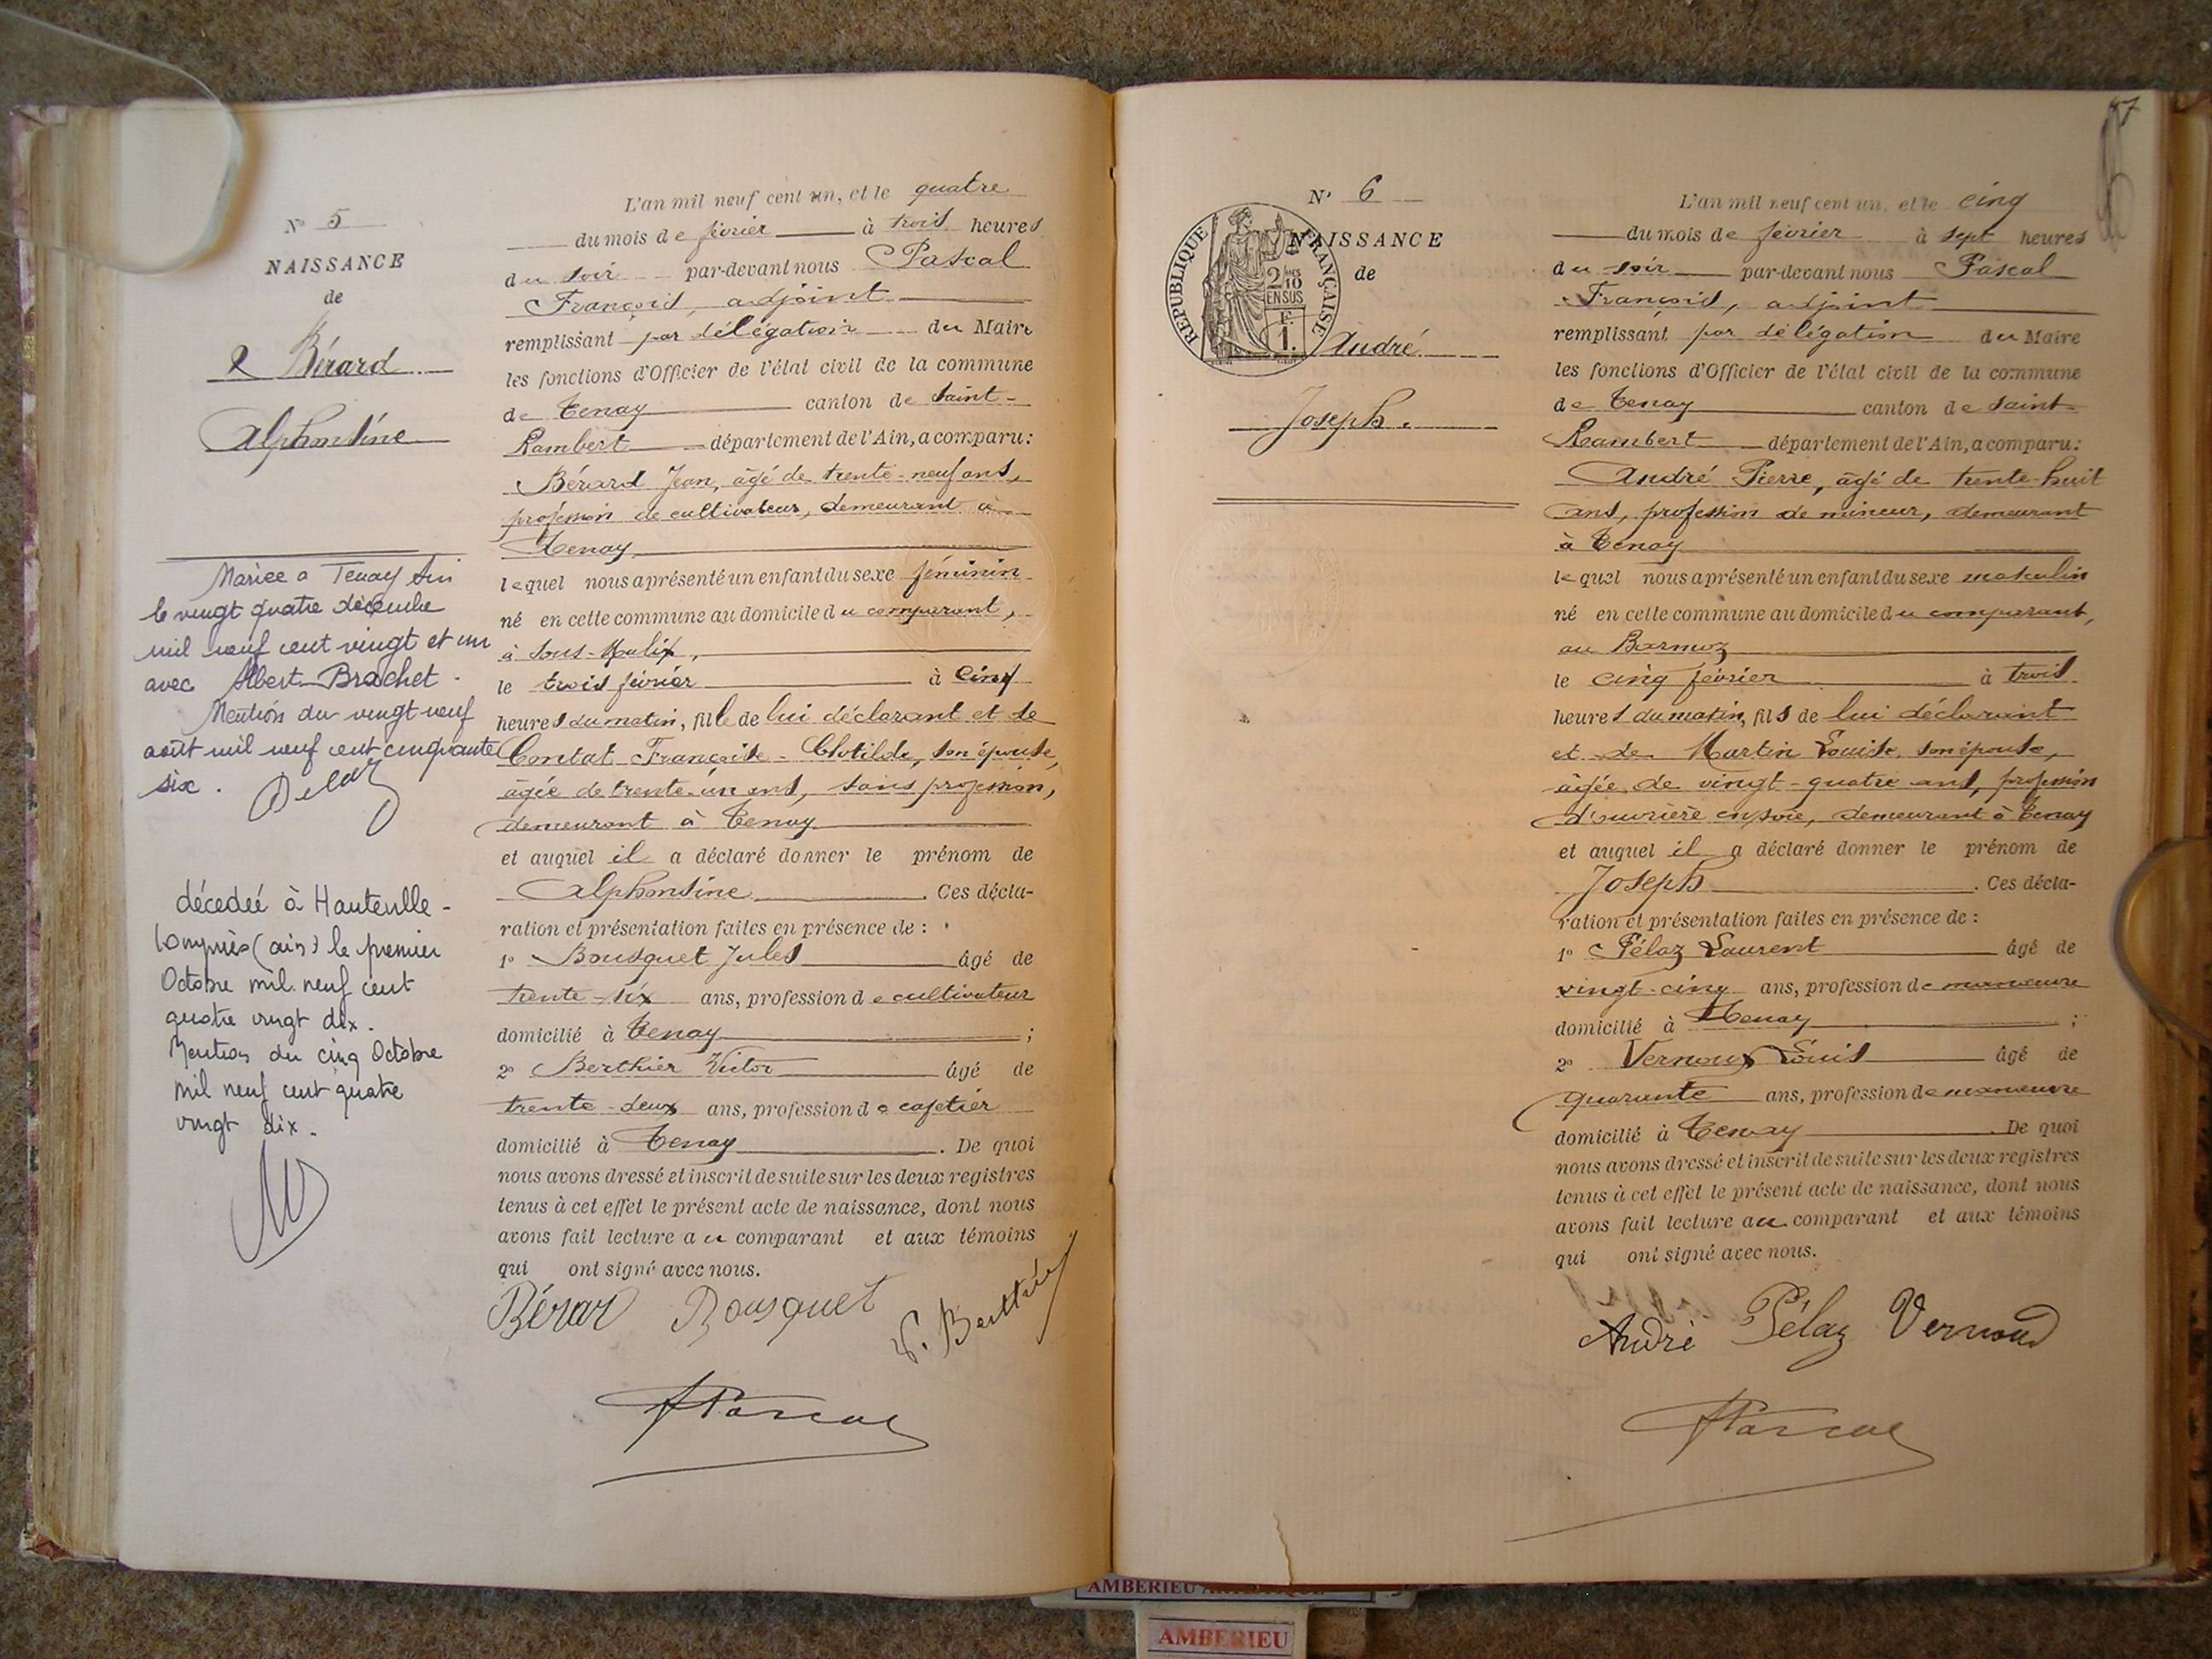 N° 5
NAISSANCE
de
Bérard
Alphonsine
Mariée a Tenay Ain
le vingt quatre décembre
mil neuf cent vingt et un
avec Albert Brachet.
Mention du vingt neuf
août mil neuf cent cinquante
six.
décedeé à Hauteville-
Lompnès (ain) le premier
Octobre mil neuf cent
quatre vingt dix.
Mention du cinq Octobre
mil neuf cent quatre
vingt dix.
L'an mil neuf cent un, et le quatre
du mois de février à trois heures
du soir par-devant nous Pascal
François, adjoint
remplissant par délégation du Maire
les fonctions d'Officier de l'état civil de la commune
de Tenay canton de Saint-
Rambert département de l'Ain, a comparu:
Bérard Jean, âgé de trente-neuf ans,
profession de cultivateur, demeurant à
Tenay
lequel nous a présenté un enfant du sexe féminin
né en cette commune au domicile du comparant,
à Sous-Malix,
le trois février à cinq
heures du matin, fille de lui déclarant et de
Contat Françoise-Clotilde, son épouse,
âgée de trente-un ans, sans profession,
demeurant à Tenay
et auquel il a déclaré donner le prénom de
Alphonsine. Ces décla-
ration et présentation faites en présence de :
1° Bousquet Jules âgé de
trente-six ans, profession de cultivateur
domicilié à Tenay ;
2° Berthier Victor âgé de
trente-deux ans, profession de cafetier
domicilié à Tenay. De quoi
nous avons dressé et inscrit de suite sur les deux registres
tenus à cet effet le présent acte de naissance, dont nous
avons fait lecture au comparant et aux témoins
qui ont signé avec nous.
Bérard Bousquet V. Berthier
Pascal
57
N° 6
REPUBLIQUE FRANÇAISE
2/10 EN SUS
F. 1.
NAISSANCE
de
André
Joseph.
L'an mil neuf cent un, et le cinq
du mois de février à sept heures
du soir par-devant nous Pascal
François, adjoint
remplissant par délégation du Maire
les fonctions d'Officier de l'état civil de la commune
de Tenay canton de Saint-
Rambert département de l'Ain, a comparu:
André Pierre, âgé de trente-huit
ans, profession de mineur, demeurant
à Tenay
lequel nous a présenté un enfant du sexe masculin
né en cette commune au domicile du comparant,
au Barmoz
le cinq février à trois
heures du matin, fils de lui déclarant
et de Martin Louise, son épouse,
âgée de vingt-quatre ans, profession
d'ouvrière en soie, demeurant à Tenay
et auquel il a déclaré donner le prénom de
Joseph. Ces décla-
ration et présentation faites en présence de :
1° Pélaz Laurent âgé de
vingt-cinq ans, profession de manœuvre
domicilié à Tenay ;
2° Vernoux Louis âgé de
quarante ans, profession de manœuvre
domicilié à Tenay. De quoi
nous avons dressé et inscrit de suite sur les deux registres
tenus à cet effet le présent acte de naissance, dont nous
avons fait lecture au comparant et aux témoins
qui ont signé avec nous.
André Pélaz Vernoud
Pascal
AMBERIEU
AMBERIEU